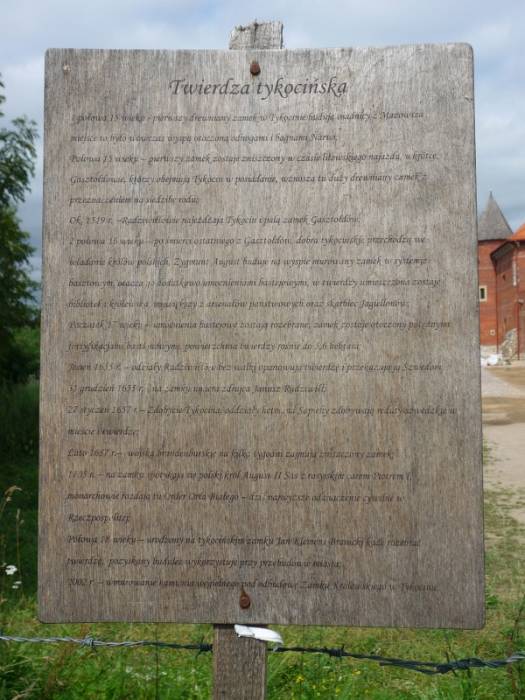 Twierdza tykocińska
1 połowa 15 wieku - pierwszy drewniany zamek w Tykocinie budują osadnicy z Mazowsza
miejsce to było wówczas wyspą otoczoną odnogami i bagnami Narwi;
Połowa 15 wieku – pierwszy zamek zostaje zniszczony w czasie litewskiego najazdu, wkrótce
Gasztołdowie, którzy obejmują Tykocin w posiadanie, wznoszą tu duży drewniany zamek z
przeznaczeniem na siedzibę rodu;
Ok. 1519 r. – Radziwiłłowie najeżdżają Tykocin i palą zamek Gasztołdów;
2 połowa 16 wieku – po śmierci ostatniego z Gasztołdów, dobra tykocińskie przechodzą we
władanie królów polskich, Zygmunt August buduje na wyspie murowany zamek w systemie
basztowym, otacza go dodatkowo umocnieniami bastejowymi, w twierdzy umieszczona zostaje
biblioteka królewska, największy z arsenałów państwowych oraz skarbiec Jagiellonów;
Początek 17 wieku – umocnienia bastejowe zostają rozebrane, zamek zostaje otoczony potężnymi
fortyfikacjami bastionowymi, powierzchnia twierdzy rośnie do 3,6 hektara;
Jesień 1655 r. – oddziały Radziwiłłów bez walki opanowują twierdzę i przekazują ją Szwedom;
31 grudzień 1655 r. – na zamku umiera zdrajca Janusz Radziwiłł;
27 styczeń 1657 r. – Zdobycie Tykocina, oddziały hetmana Sapiehy zdobywają reduty szwedzkie w
mieście i twierdzę;
Lato 1657 r. – wojska brandenburskie na kilka tygodni zajmują zniszczony zamek;
1705 r. – na zamku spotykają się polski król August II Sas z rosyjskim carem Piotrem I,
monarchowie rozdają tu Order Orła Białego – dziś najwyższe odznaczenie cywilne w
Rzeczpospolitej;
Połowa 18 wieku – urodzony na tykocińskim zamku Jan Klemens Branicki każe rozebrać
twierdzę, pozyskany budulec wykorzystuje przy przebudowie miasta;
2002 r. – wmurowanie kamienia węgielnego pod odbudowę Zamku Królewskiego w Tykocinie.